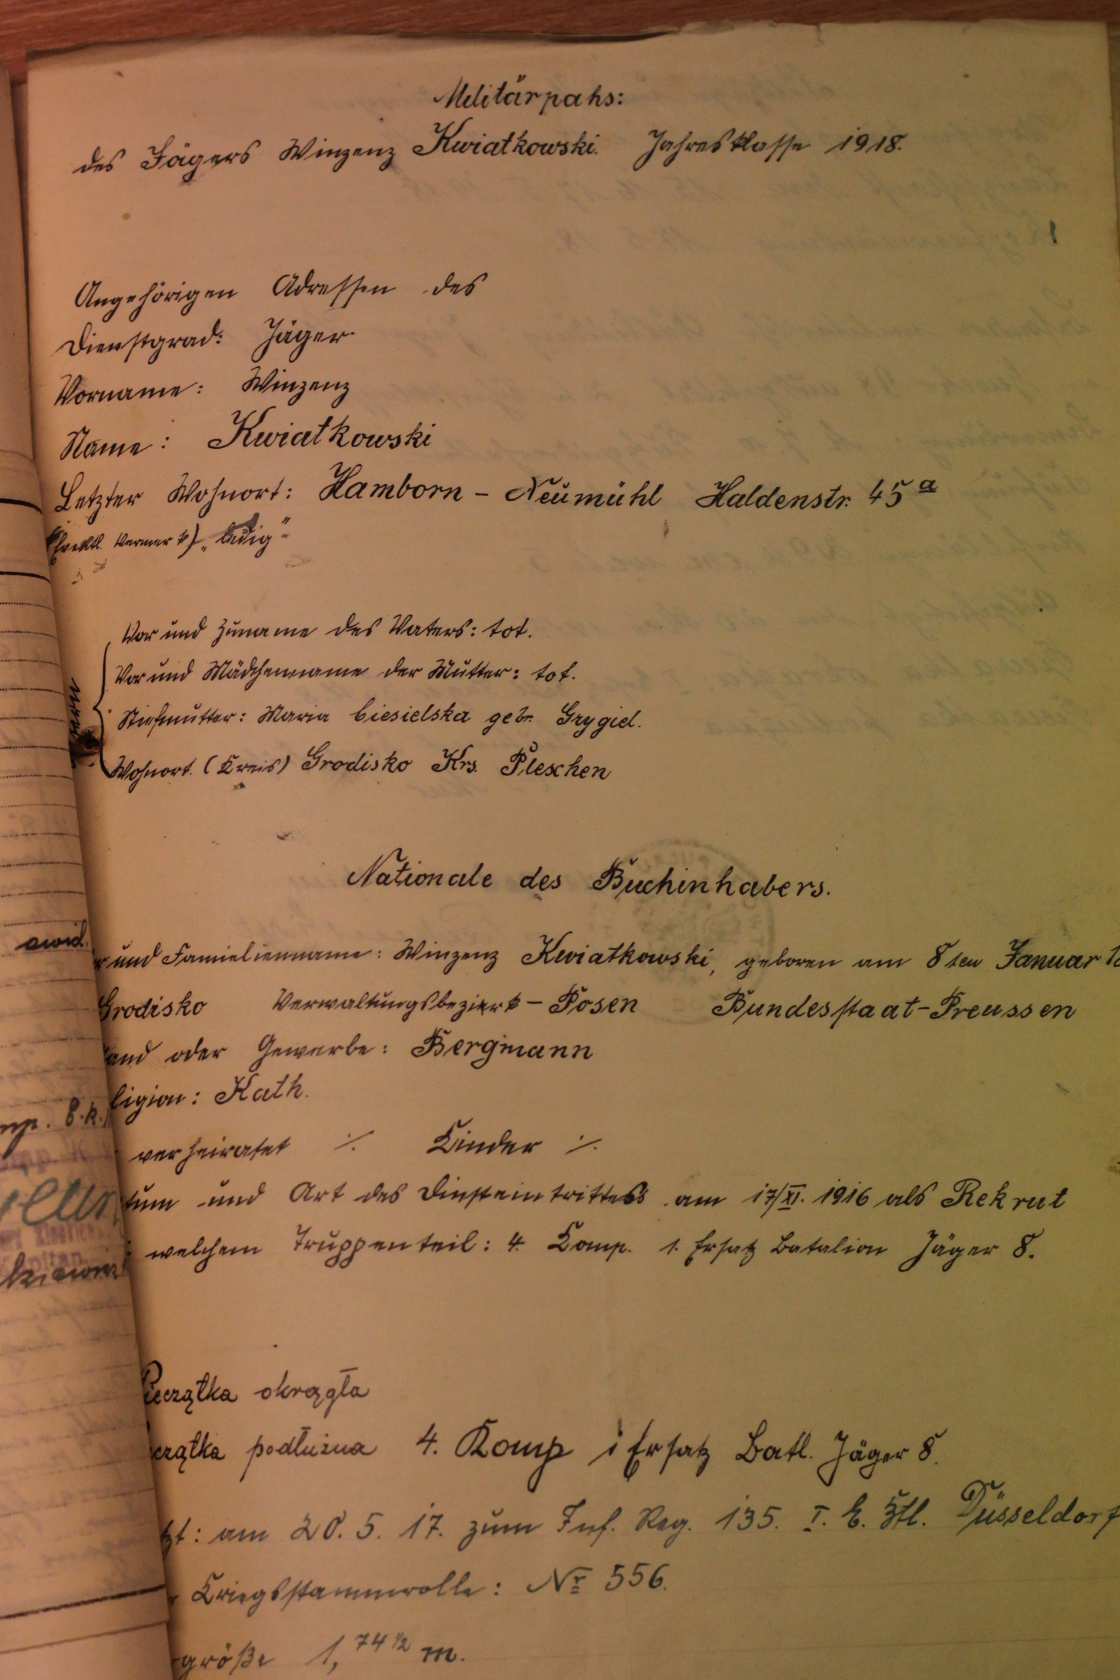 Militärpahs:
des Jägers Winzenz Kwiatkowski. Jahresklasse 1918.
Angehörigen Adressen des
Dienstgrad: Jäger
Vorname: Winzenz
Name: Kwiatkowski
Letzter Wohnort: Hamborn - Neumühl Haldenstr. 45a
Vermerk) „ledig"
Vor und Zuname des Vaters: tot.
Vor und Mädchenname der Mutter: tot.
Stiefmutter: Maria Ciesielska geb. Grygiel.
Wohnort. (Kreis) Grodisko Krs. Pleschen
Nationale des Buchinhabers.
und Famielienname: Winzenz Kwiatkowski, geboren am 8ten Januar
Grodisko Verwaltungsbezierk - Posen Bundesstaat-Preussen
and oder Gewerbe: Bergmann
ligion: Kath.
verheiratet ·/· Kinder ·/·
tum und Art des Dinsteintrittess am 17/XI. 1916 als Rekrut
welchem Truppenteil: 4. Komp. 1. Ersatz Batalion Jäger 8.
Pieczątka okrągła
czątka podłużna 4. Komp 1 Ersatz Batl. Jäger 8.
zt: am 20. 5. 17. zum Inf. Reg. 135. I. E. Btl. Düsseldorf
r Kriegsstammrolle: Nr 556.
größe 1,74 1/2 m.